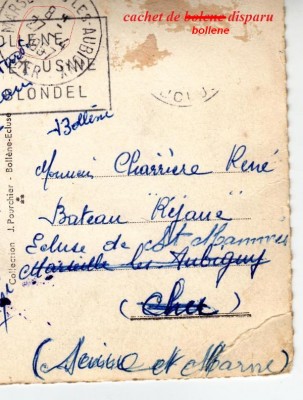 cachet de bolene disparu
bollene
MARSEILLES-LES-AUBI
BOLLENE
USINE
BLONDEL
Bollène
Monsieur Charrière René
Bateau "Réjane"
Ecluse de St Mammès
Marseille les Aubigny
(Cher)
(Seine et Marne)
Collection J. Pourchier - Bollène-Ecluse